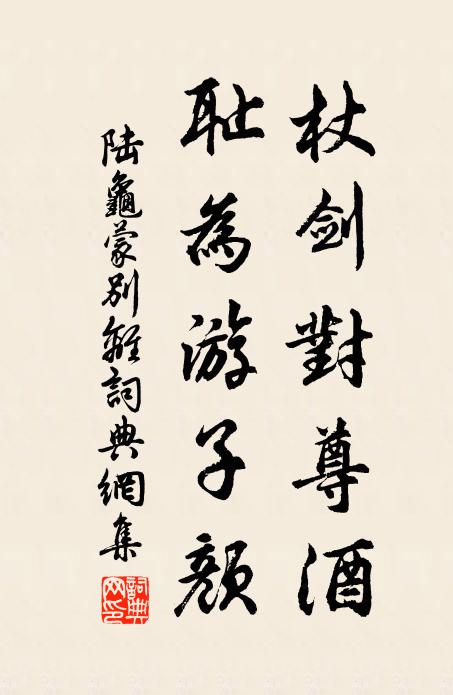 杖剑對尊酒
耻為游子顔
陆龜蒙别離詞典網集
詞典网印